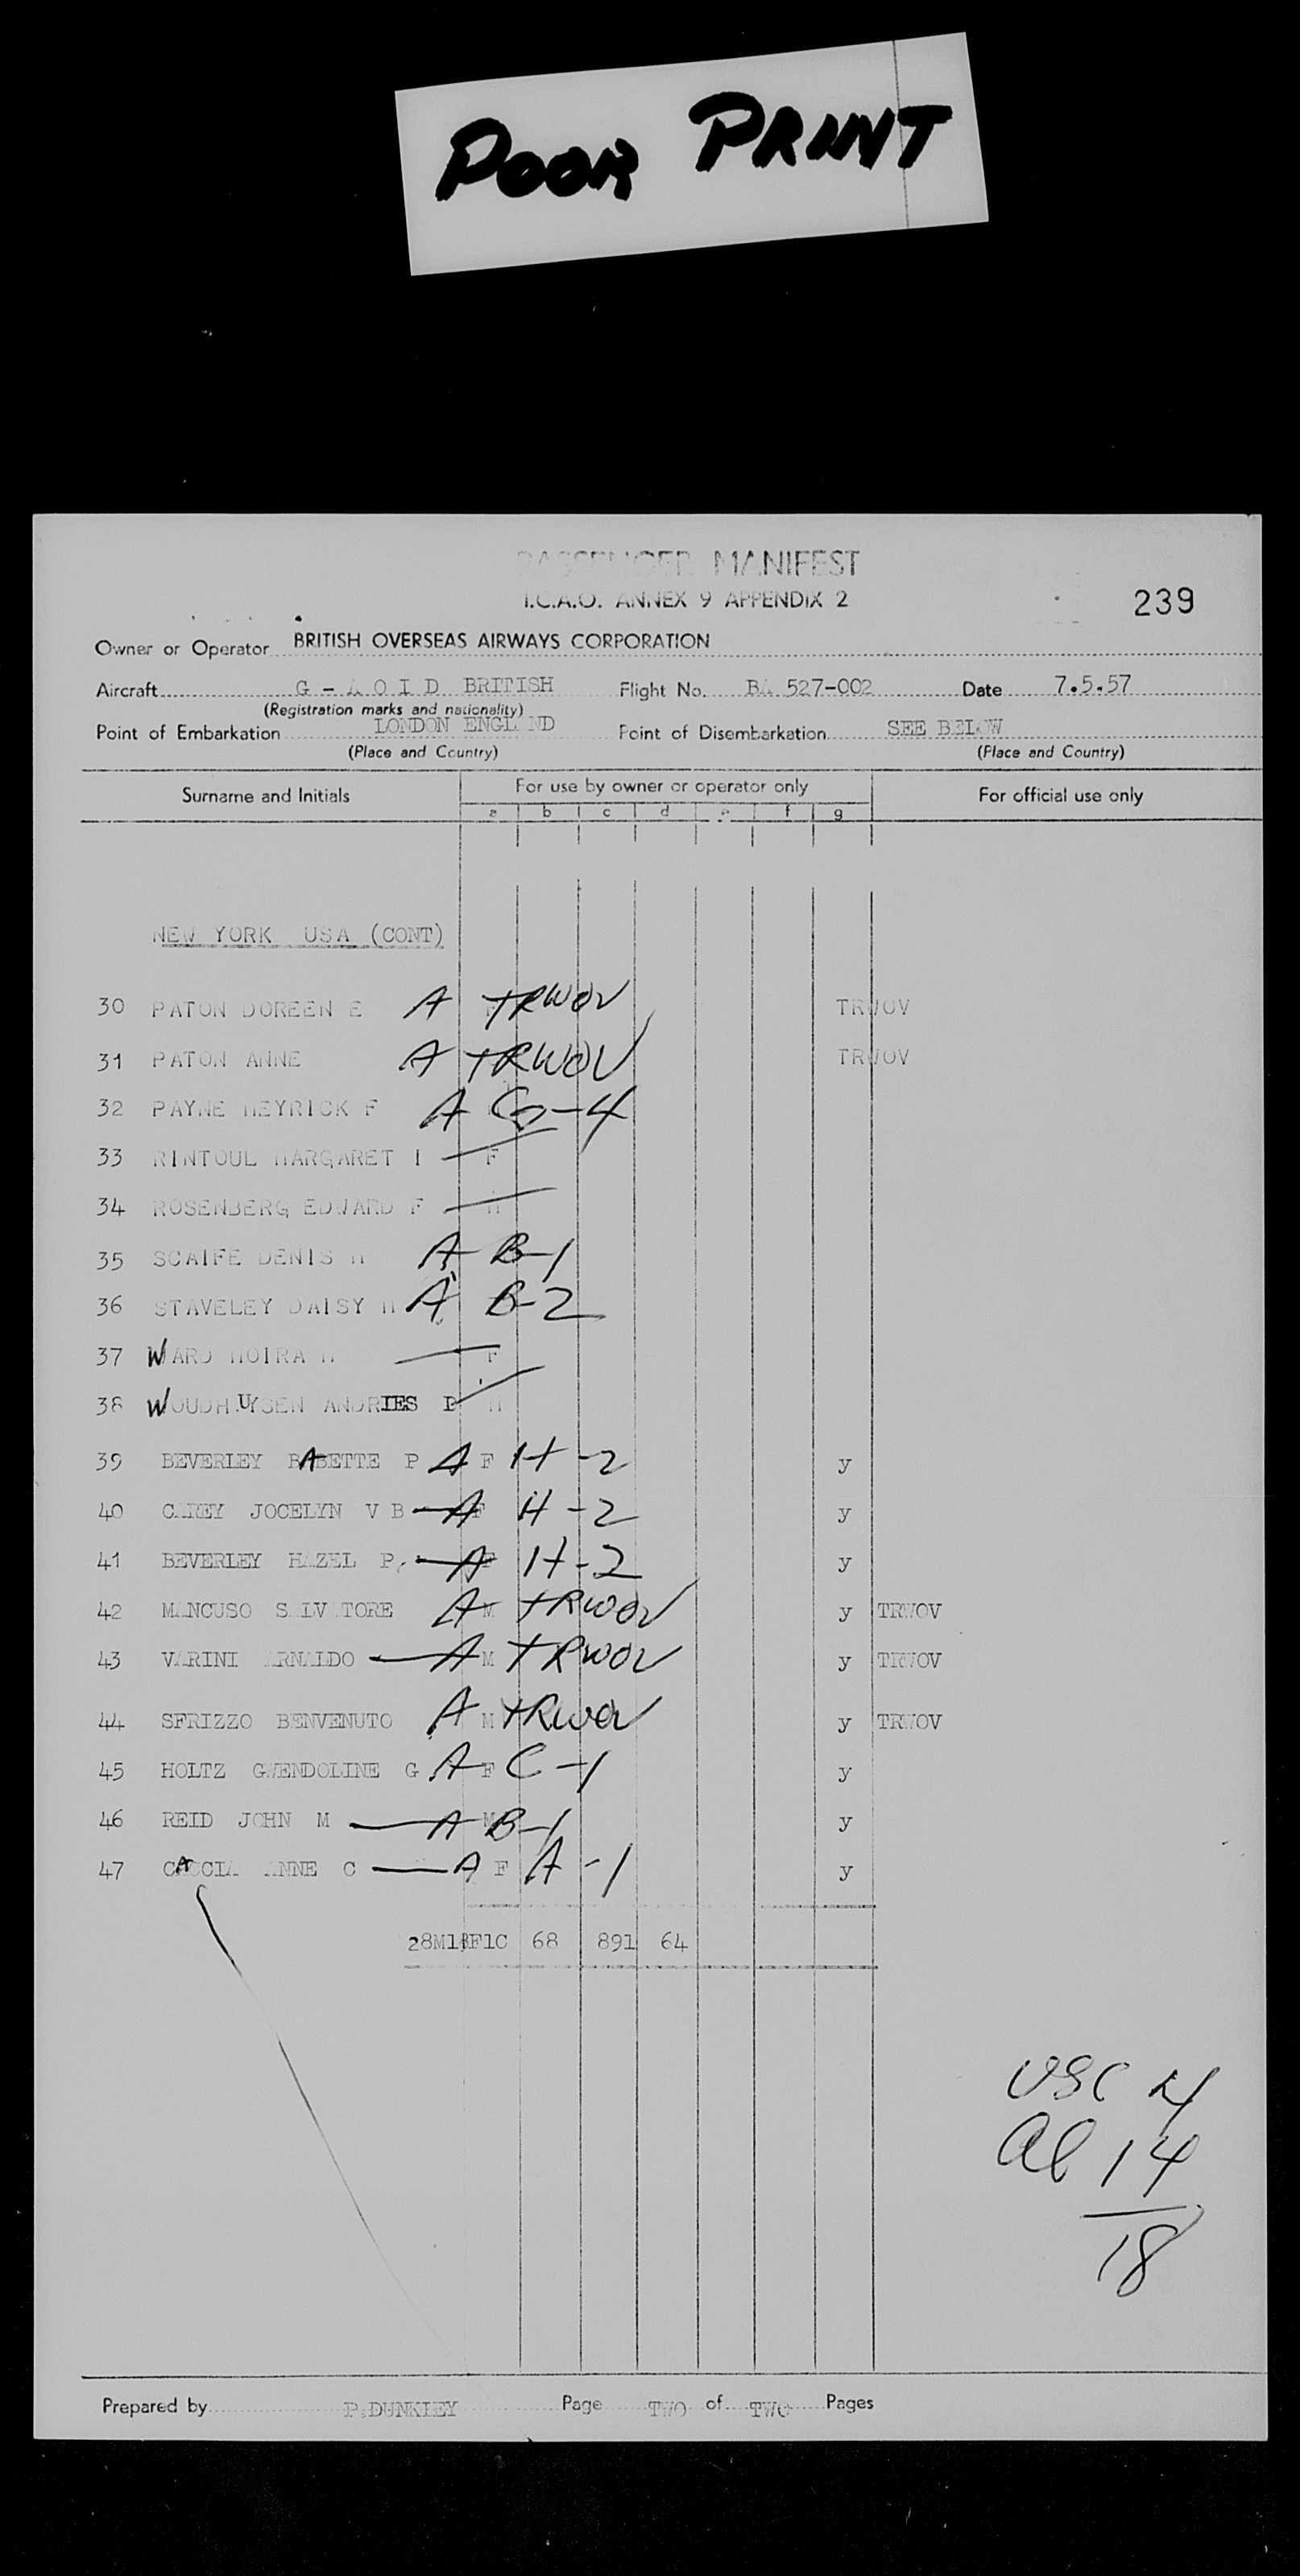 POOR PRINT
PASSENGER MANIFEST
I.C.A.O. ANNEX 9 APPENDIX 2
239
Owner or Operator BRITISH OVERSEAS AIRWAYS CORPORATION
Aircraft G - A O I D BRITISH Flight No. BA 527-002 Date 7.5.57
(Registration marks and nationality)
Point of Embarkation LONDON ENGLAND Point of Disembarkation SEE BELOW
(Place and Country) (Place and Country)
Surname and Initials For use by owner or operator only For official use only
a b c d e f g
NEW YORK USA (CONT)
30 PATON DOREEN E A TRWOV TRWOV
31 PATON ANNE A TRWOV TRWOV
32 PAYNE MEYRICK F A G-4
33 RINTOUL MARGARET I F
34 ROSENBERG EDWARD F M
35 SCAIFE DENIS M A B-1
36 STAVELEY DAISY M A B-2
37 WARD MOIRA M F
38 WOUDHUYSEN ANDRIES D M
39 BEVERLEY BABETTE P A F H-2 y
40 CAREY JOCELYN V B A F H-2 y
41 BEVERLEY HAZEL P A F H-2 y
42 MANCUSO SALVATORE A M TRWOV y TRWOV
43 VARINI ARNALDO A M TRWOV y TRWOV
44 SFRIZZO BENVENUTO A M TRWOV y TRWOV
45 HOLTZ GWENDOLINE G A F C-1 y
46 REID JOHN M A M B-1 y
47 CACCIA ANNE C A F A-1 y
28M18F1C 68 891 64
USC 4
Al 14
18
Prepared by P.DUNKLEY Page TWO of TWO Pages